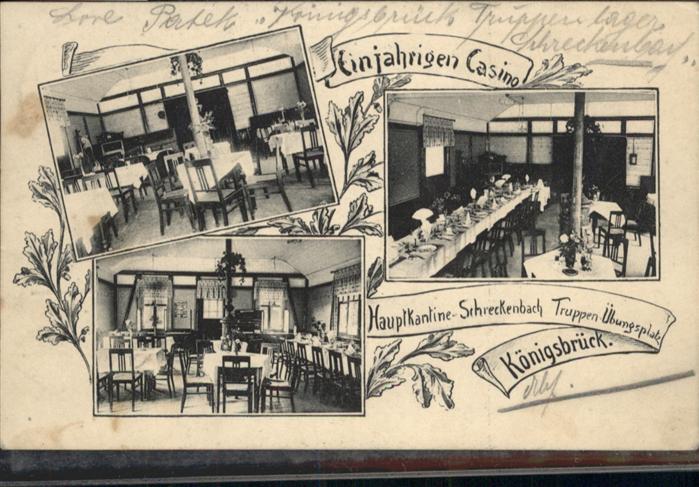 "Königsbrück Truppenlager
Schreckenbach"
Einjährigen Casino
Hauptkantine-Schreckenbach Truppen-Übungsplatz
Königsbrück.